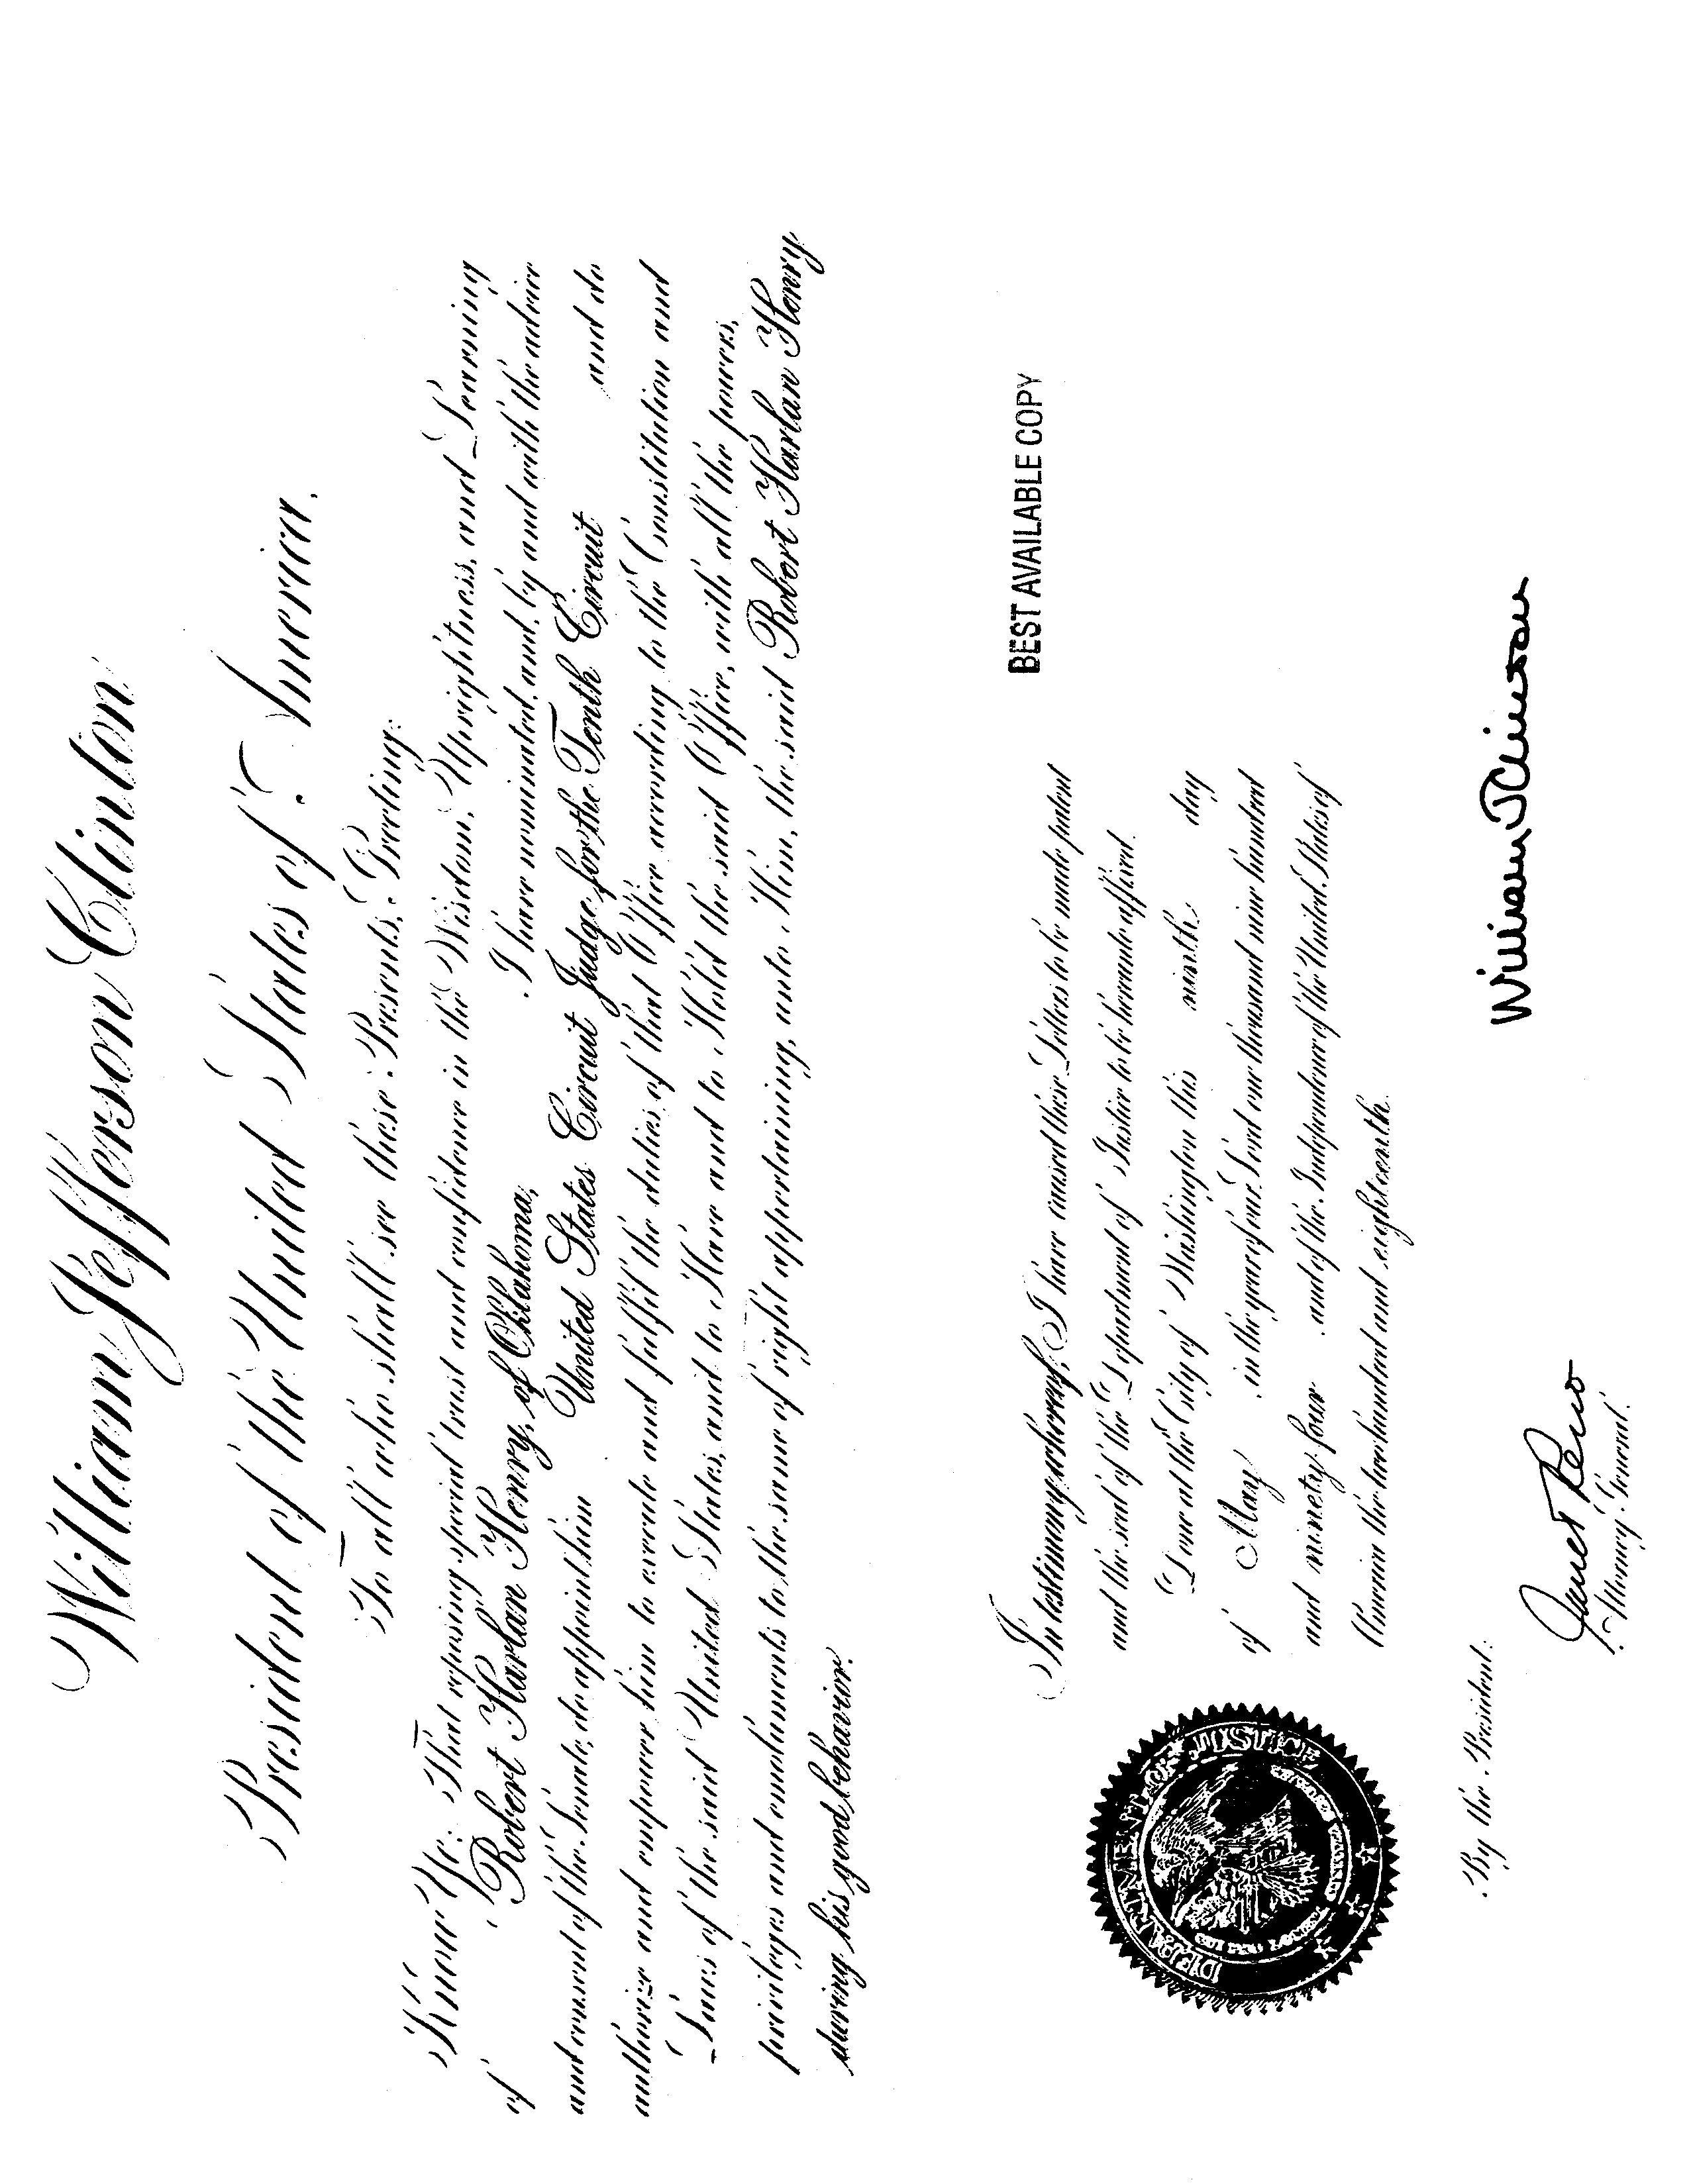 William Jefferson Clinton
President of the United States of America.
To all who shall see these Presents, Greeting:
Know Ye: That reposing special trust and confidence in the Wisdom, Uprightness, and Learning
of Robert Harlan Henry, of Oklahoma, I have nominated, and, by and with the advice
and consent of the Senate, do appoint him United States Circuit Judge for the Tenth Circuit and do
authorize and empower him to execute and fulfil the duties of that Office according to the Constitution and
Laws of the said United States, and to Have and to Hold the said Office, with all the powers,
privileges and emoluments to the same of right appertaining, unto Him, the said Robert Harlan Henry
during his good behavior.
BEST AVAILABLE COPY
In testimony whereof, I have caused these Letters to be made patent
and the seal of the Department of Justice to be hereunto affixed.
Done at the City of Washington this ninth day
of May in the year of our Lord one thousand nine hundred
and ninety-four and of the Independence of the United States of
America the two hundred and eighteenth.
DEPARTMENT OF JUSTICE
By the President:
William J Clinton
Janet Reno
Attorney General.